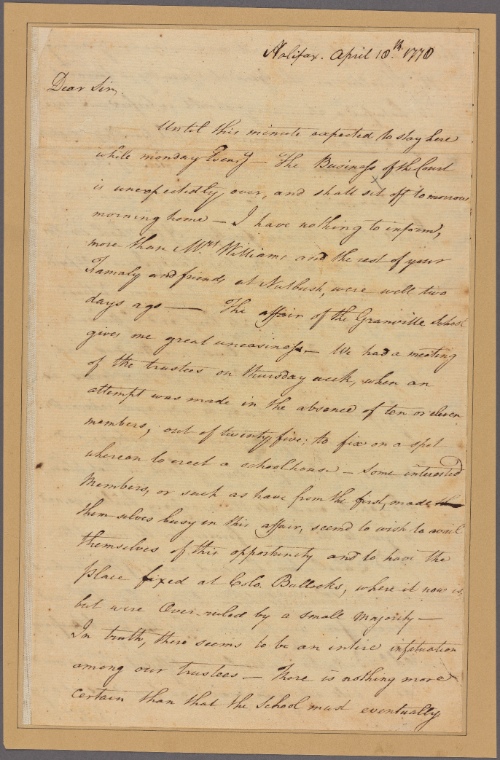 Halifax. April 18.th 1770
Dear Sir,
Until this minute expected to stay here
while monday Eveng — The Business of the Court
is unexpectedly over, and shall set off tomorrow
morning home — I have nothing to inform,
more than Mrs Williams and the rest of your
Famaly and friends at Nutbush, were well two
days ago — The affair of the Granville School
gives me great uneasiness — We had a meeting
of the trustees on thursday week, when an
attempt was made in the absence of ten or eleven
members, out of twenty five; to fix on a spot
whereon to erect a schoolhouse — Some interested
Members, or such as have from the first, made
themselves busy in this affair, seem'd to wish to avail
themselves of this opportunity and to have the
place fixed at Colo. Bullocks, where it now is,
but were Over-ruled by a small majority —
In truth, there seems to be an intire infatuation
among our trustees — There is nothing more
certain than that the School must eventually